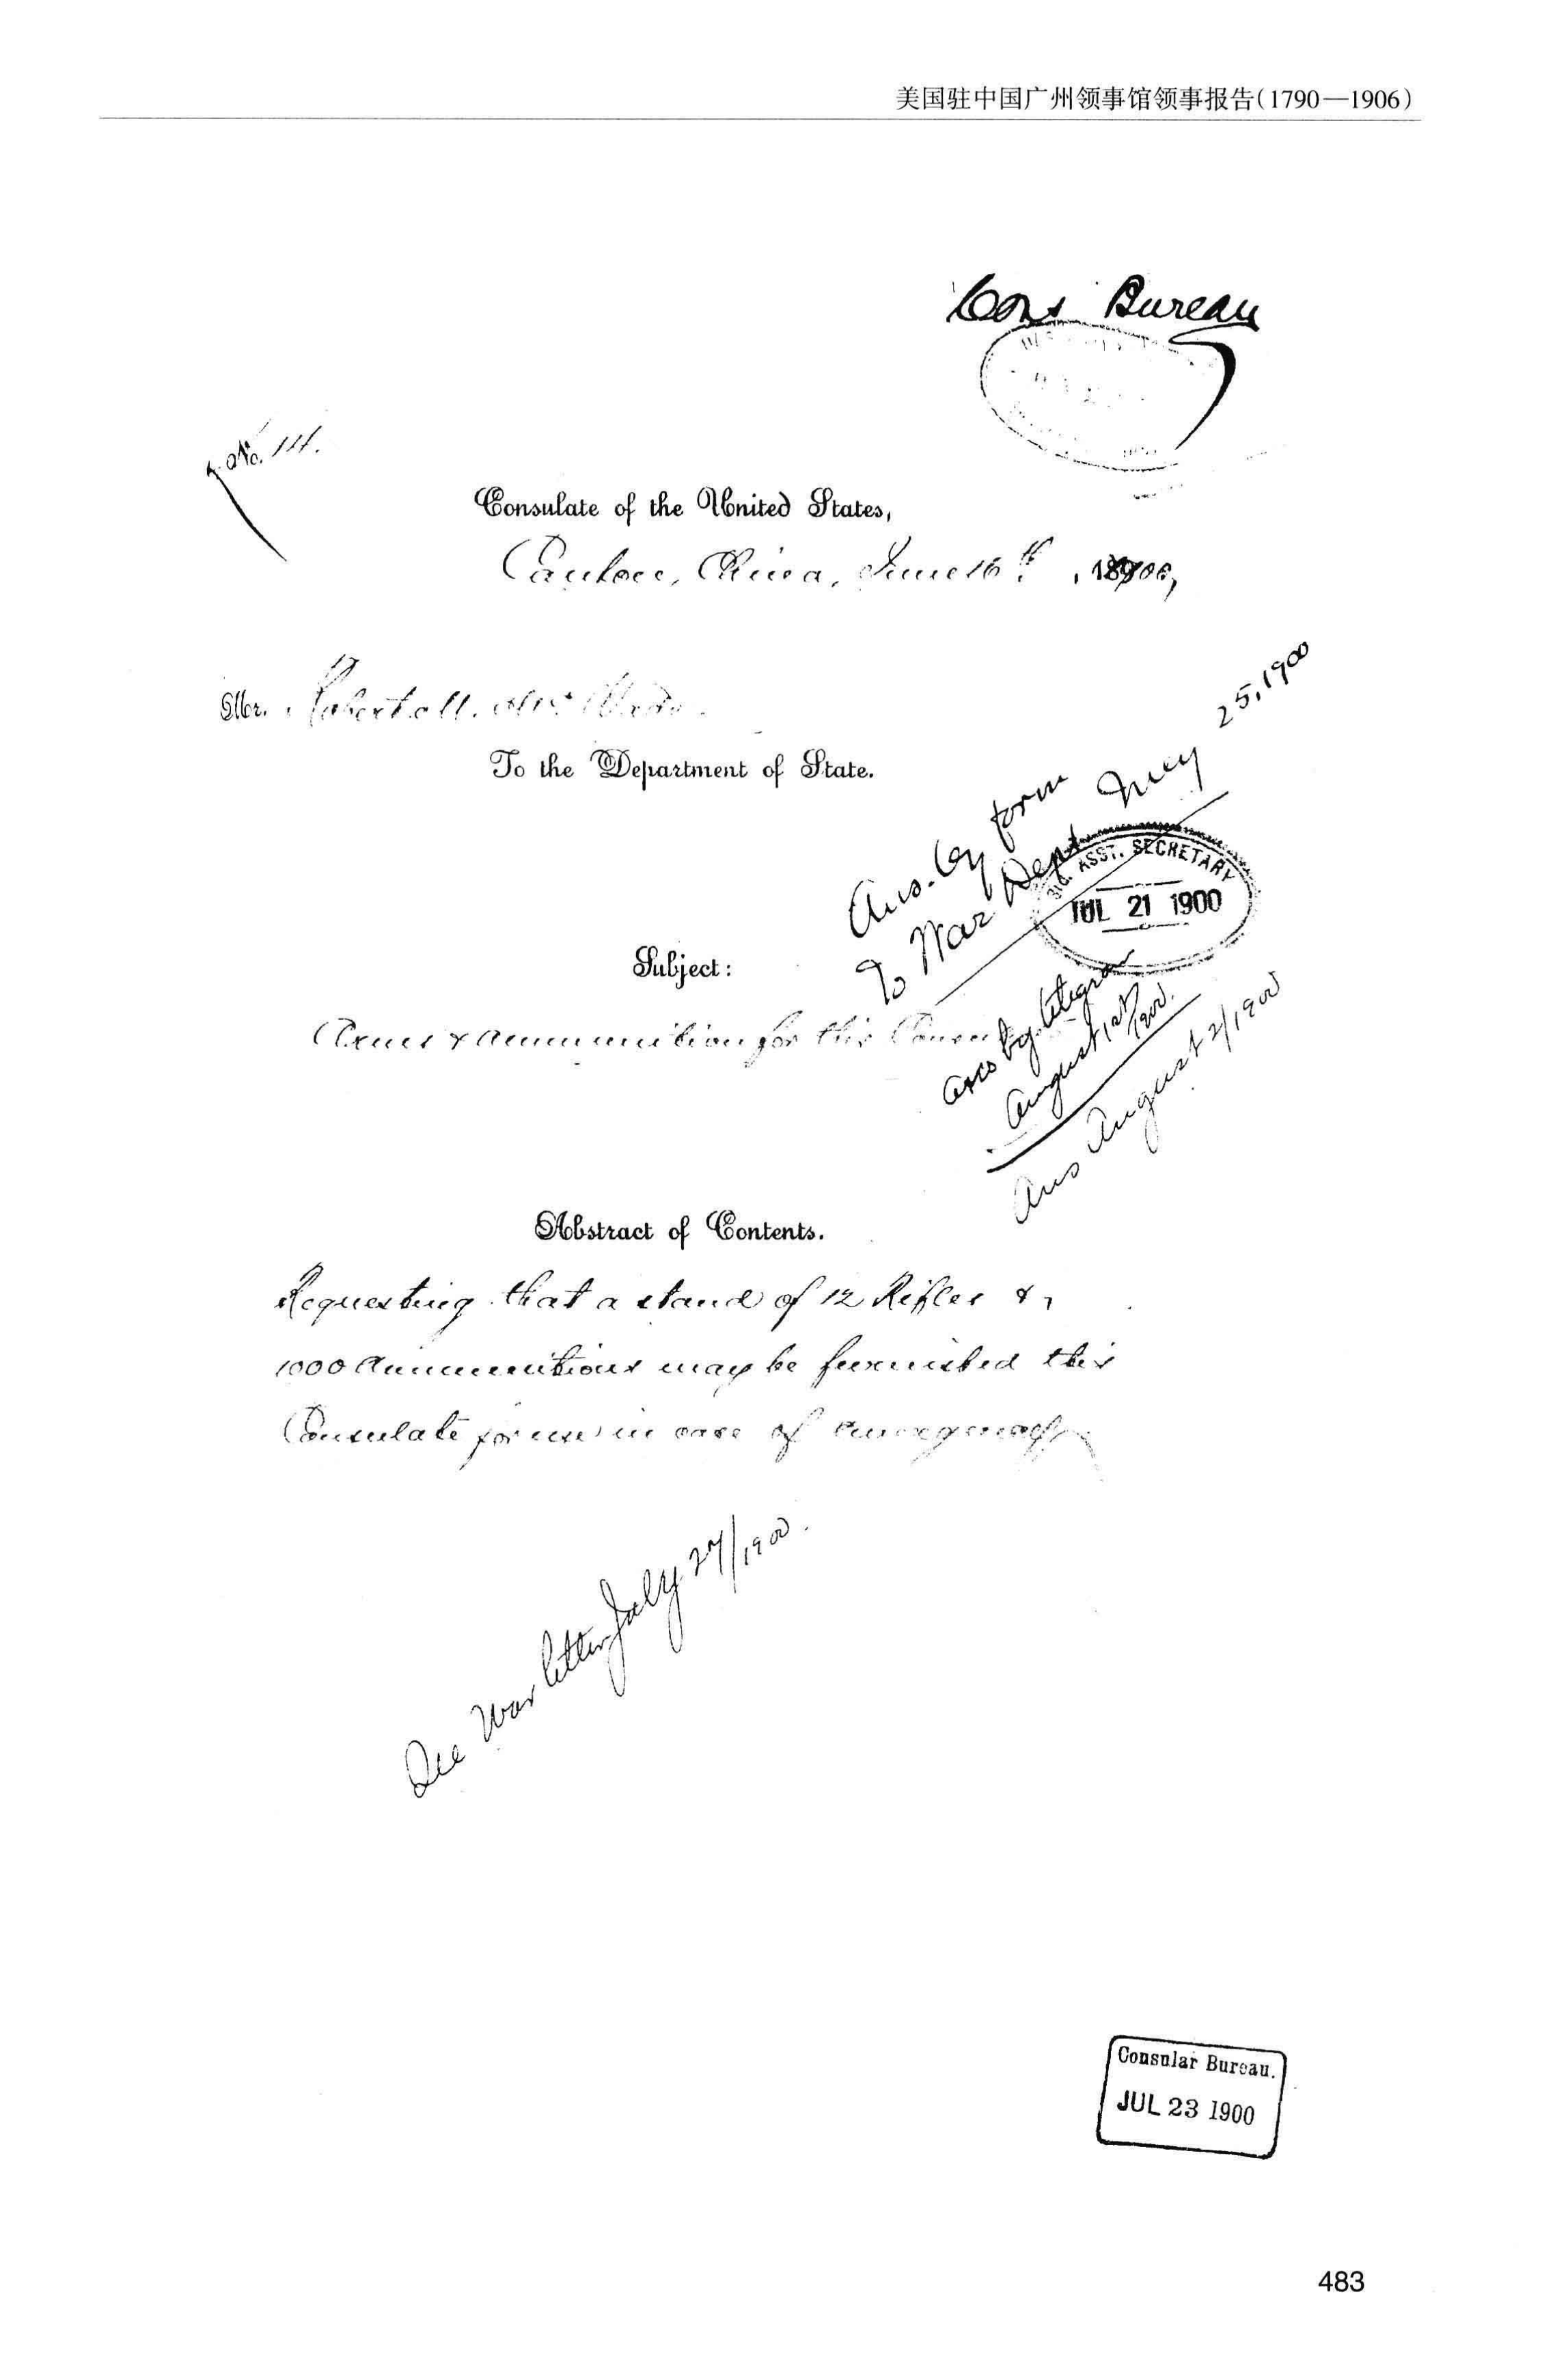 美国驻中国广州领事馆领事报告(1790—1906)
Cons Bureau
No. 14.
Consulate of the United States,
Canton, China, June 16th, 1900,
Mr. Robert M. McWade.
To the Department of State.
Ans. by form
To War Dept July 25, 1900
ASST. SECRETARY
JUL 21 1900
Subject:
Arms & ammunition for this
Ans by telegram
August 1st 1900.
Ans August 2/1900
Abstract of Contents.
Requesting that a stand of 12 Rifles &
1000 Ammunitions may be furnished this
Consulate for use in case of emergency
See War letter July 27/1900.
Consular Bureau.
JUL 23 1900
483